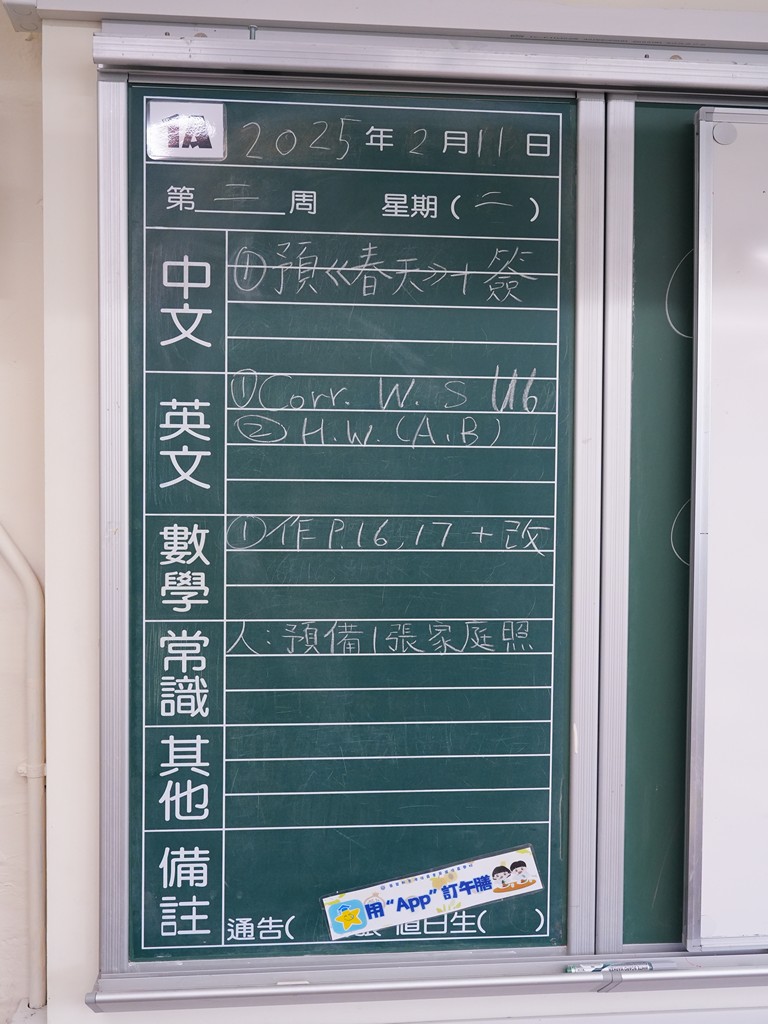 1A 2025年2月11日
第二周 星期(二)
中文
①預《春天》+簽
英文
①Corr. W.S U6
②H.W.(A,B)
數學
①作P.16,17+改
常識
人:預備1張家庭照
其他
備註
用“App”訂午膳
通告( 值日生( )